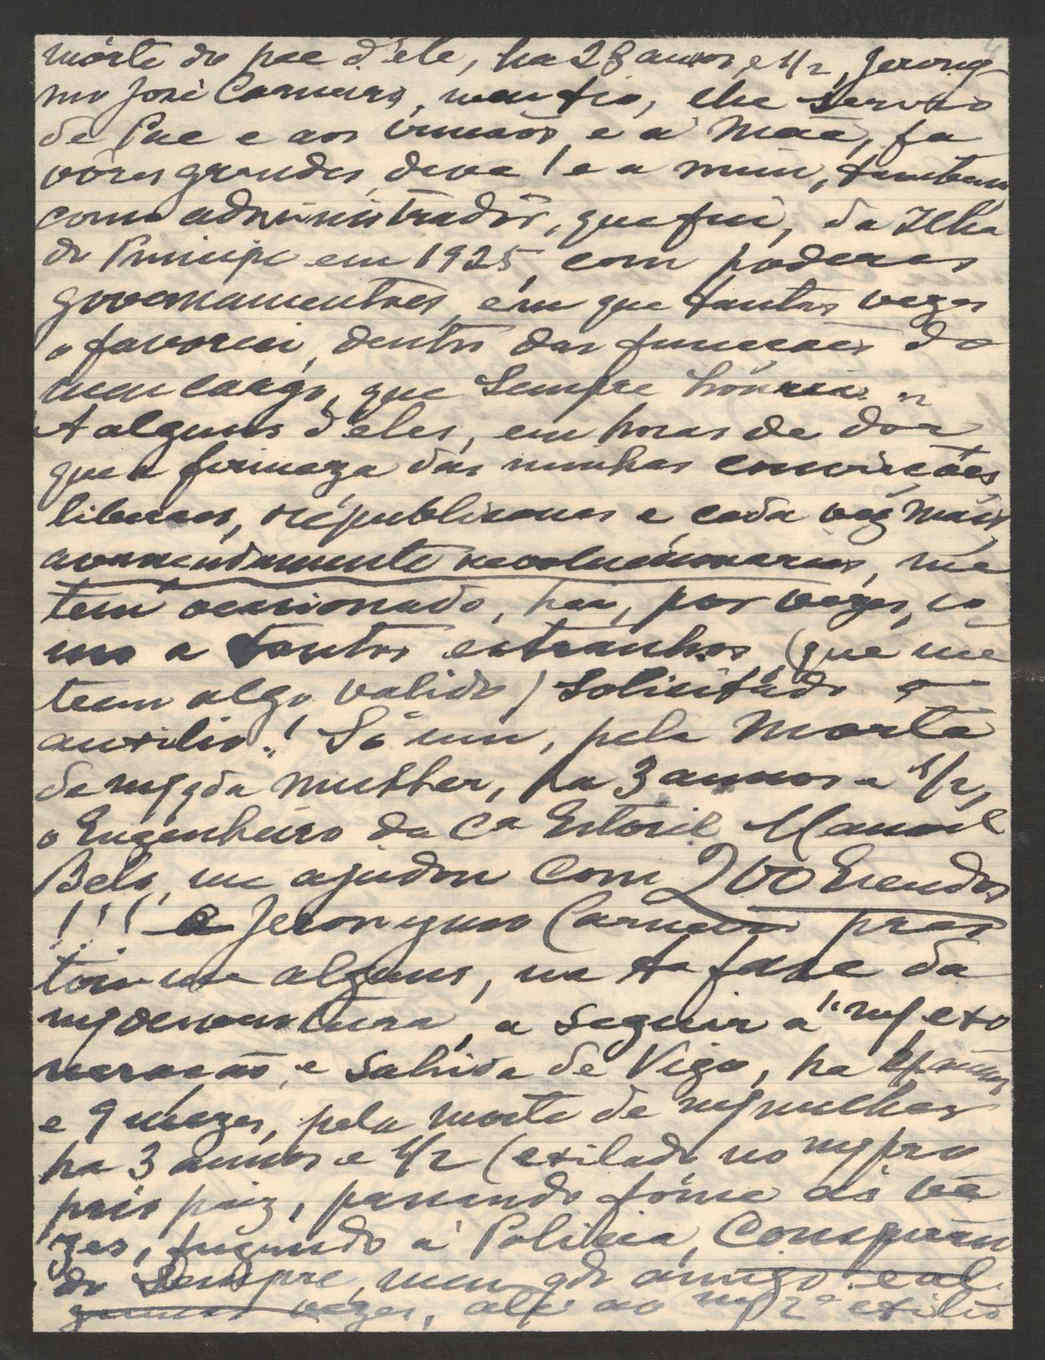 mórte do pae d'ele, ha 28 annos e 1/2, Jerony-
mo José Carneiro, meu tio, lhe serviu
de Pae e aos irmãos e a Mãe, fa
vôres grandes, deve! e a mim, tambem
como administradôr, que fui, da Ilha
do Principe em 1925, com poderes
governamentaes, em que tantas vezes
o favoreci, dentro das funcções do
meu cargo, que sempre honrei.
A alguns d'eles, em horas de dôr
que a firmeza das minhas convicções
liberaes, républicanas e cada vez mais
avançadamente revolucionarias, me
tem ocasionado, hei, por vezes, co
mo a tantos extranhos (que me
tem algo valido) solicitado o
auxilio.! Só um, pela morte
de mª qda mulher, ha 3 annos e 1/2,
o Engenheiro da Cª Estoril Manoel
Belo, me ajudou com 200 Escudos
!!! e Jeronymo Carneiro pres
tou-me alguns, na 1a fase da
mª desventura, a seguir a mª exo
neração, e sahida de Vigo, ha annos
e 9 mezes, pela morte de mª mulher
ha 3 annos e 1/2 (exilado no mº pro
prio paiz, passando fóme as ve
zes, fugindo á Policia, Conspiran
do Sempre, meu qdo amigo e al
gumas vezes, até ao mº 2º exilio